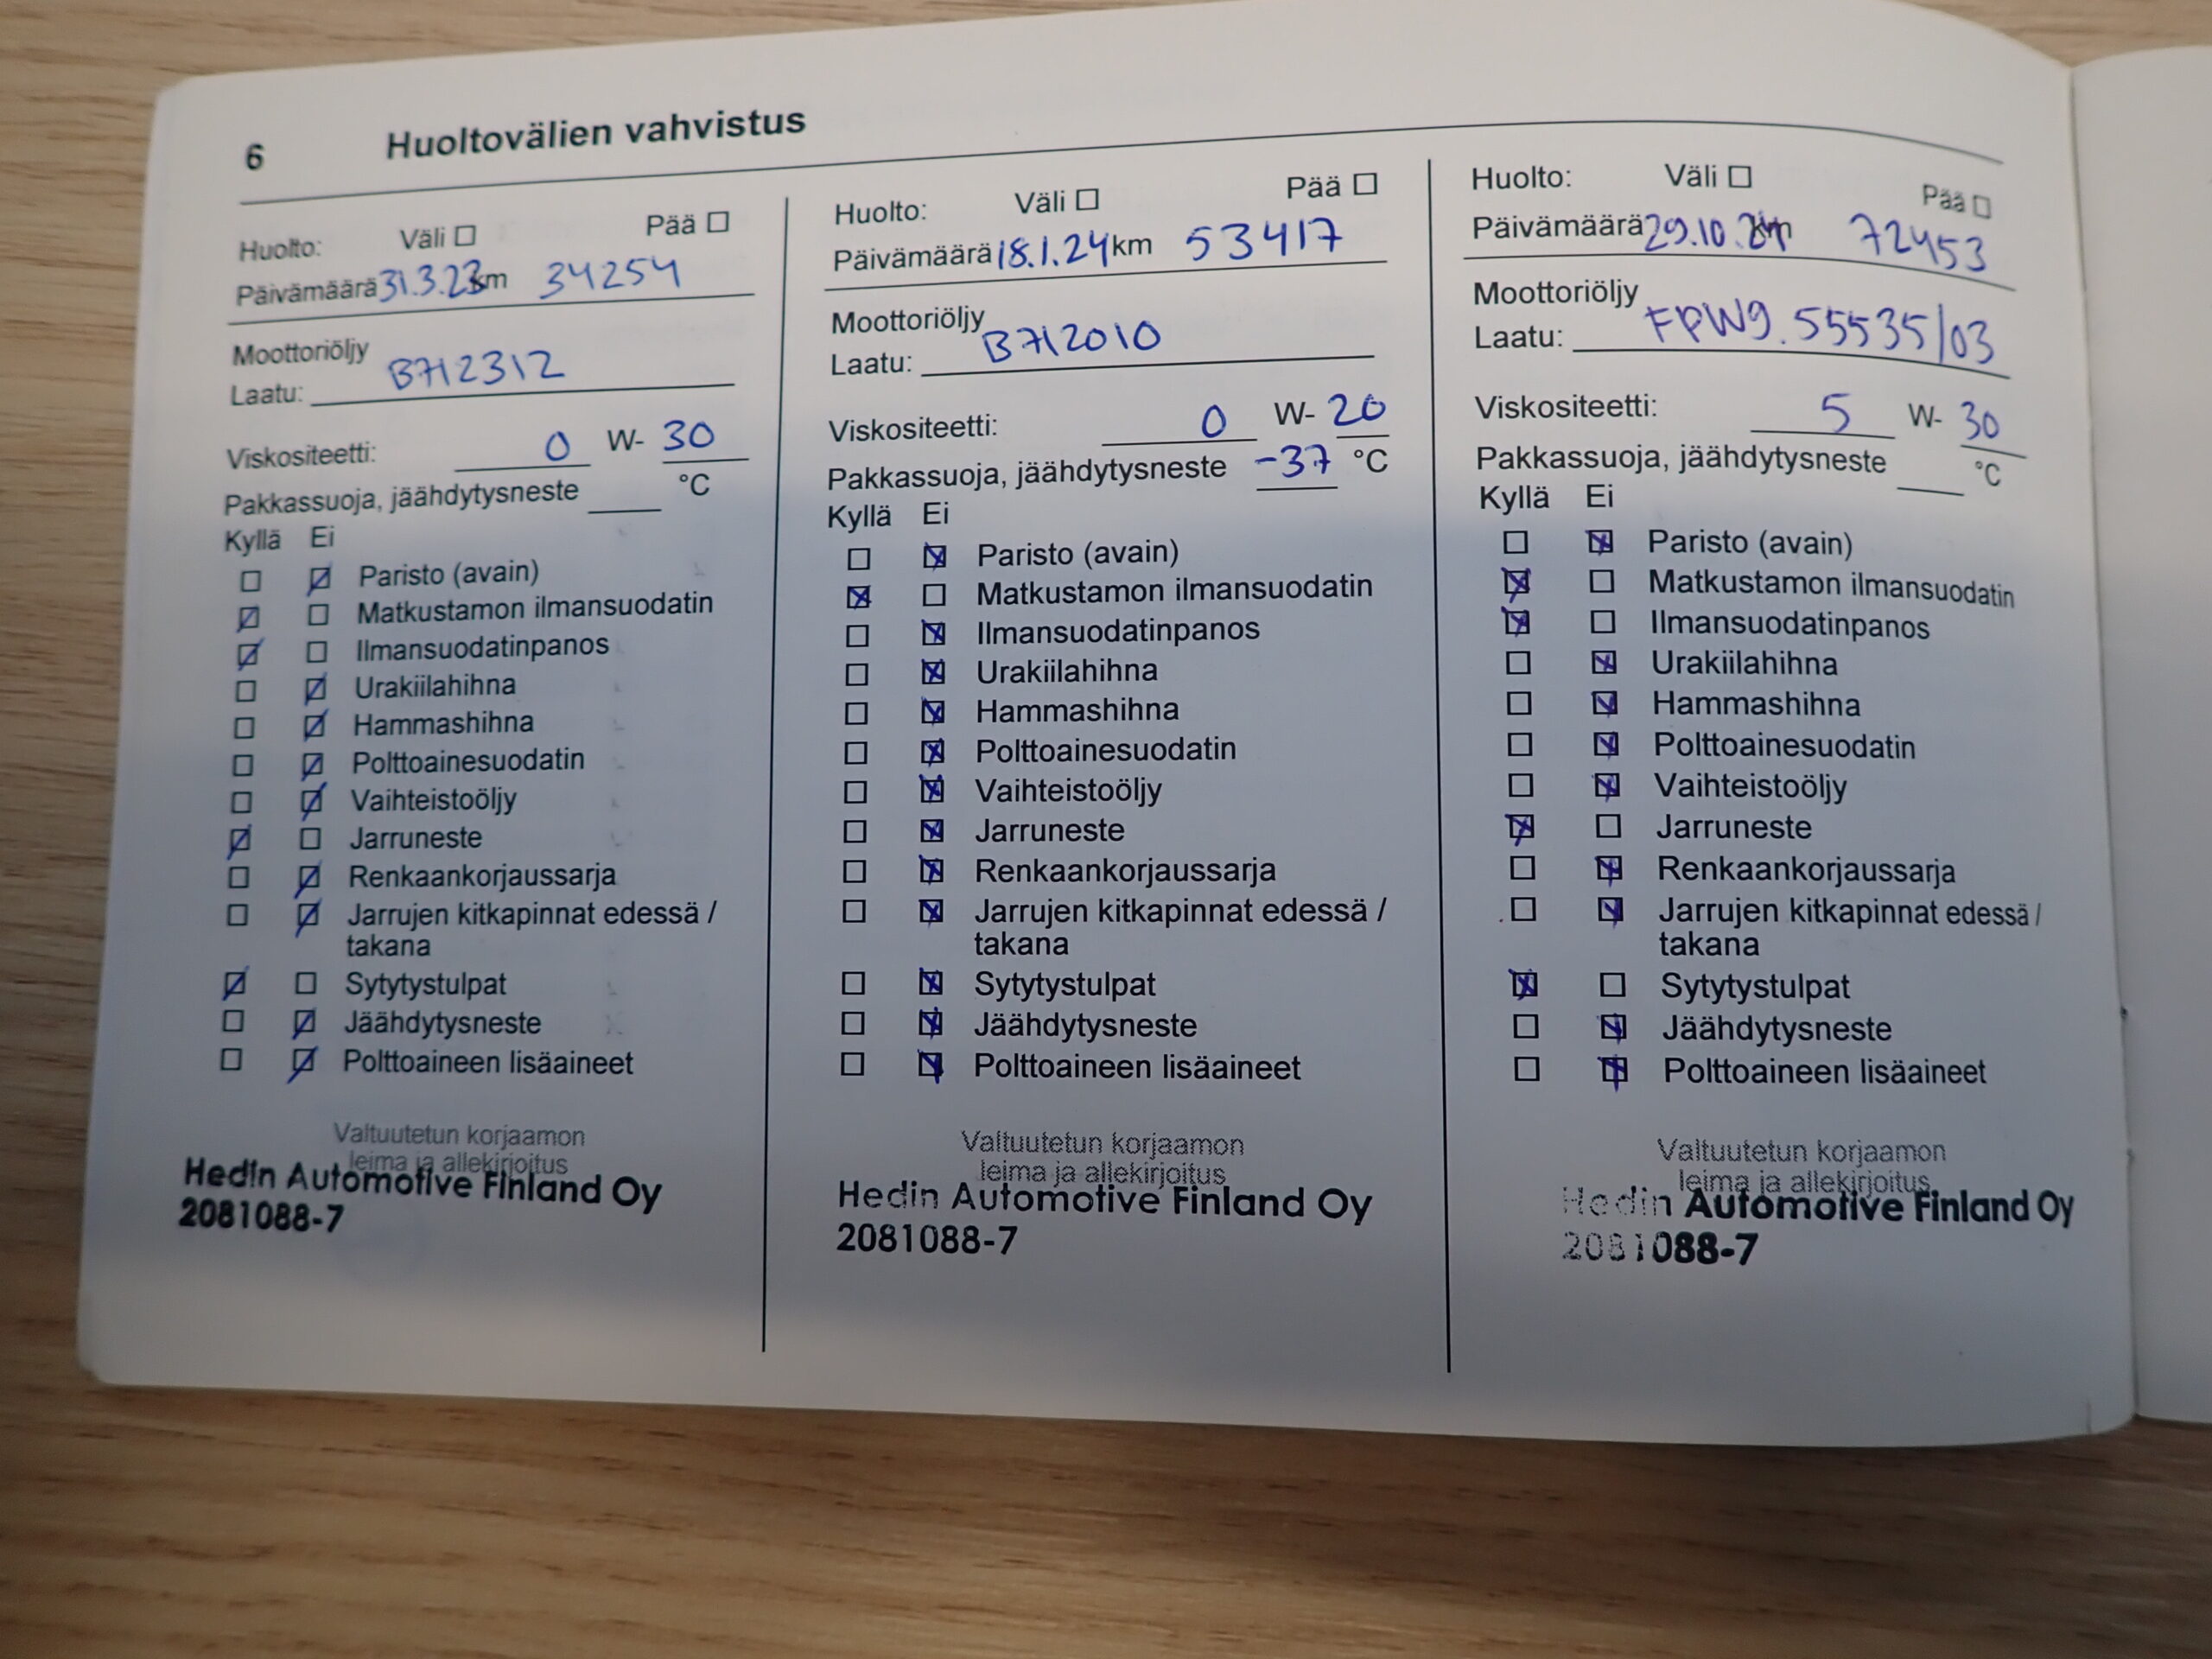 6 Huoltovälien vahvistus
Huolto: Väli ☐ Pää ☐
Päivämäärä 31.3.23 km 34254
Moottoriöljy
Laatu: B712312
Viskositeetti: 0 W- 30
Pakkassuoja, jäähdytysneste ____ °C
Kyllä Ei
☐ ☒ Paristo (avain)
☒ ☐ Matkustamon ilmansuodatin
☒ ☐ Ilmansuodatinpanos
☐ ☒ Urakiilahihna
☐ ☒ Hammashihna
☐ ☒ Polttoainesuodatin
☐ ☒ Vaihteistoöljy
☒ ☐ Jarruneste
☐ ☒ Renkaankorjaussarja
☐ ☒ Jarrujen kitkapinnat edessä /
takana
☒ ☐ Sytytystulpat
☐ ☒ Jäähdytysneste
☐ ☒ Polttoaineen lisäaineet
Valtuutetun korjaamon
leima ja allekirjoitus
Hedin Automotive Finland Oy
2081088-7
Huolto: Väli ☐ Pää ☐
Päivämäärä 18.1.24 km 53417
Moottoriöljy
Laatu: B712010
Viskositeetti: 0 W- 20
Pakkassuoja, jäähdytysneste -37 °C
Kyllä Ei
☐ ☒ Paristo (avain)
☒ ☐ Matkustamon ilmansuodatin
☐ ☒ Ilmansuodatinpanos
☐ ☒ Urakiilahihna
☐ ☒ Hammashihna
☐ ☒ Polttoainesuodatin
☐ ☒ Vaihteistoöljy
☐ ☒ Jarruneste
☐ ☒ Renkaankorjaussarja
☐ ☒ Jarrujen kitkapinnat edessä /
takana
☐ ☒ Sytytystulpat
☐ ☒ Jäähdytysneste
☐ ☒ Polttoaineen lisäaineet
Valtuutetun korjaamon
leima ja allekirjoitus
Hedin Automotive Finland Oy
2081088-7
Huolto: Väli ☐ Pää ☐
Päivämäärä 29.10.24 km 72453
Moottoriöljy
Laatu: FPW9.55535/03
Viskositeetti: 5 W- 30
Pakkassuoja, jäähdytysneste ____ °C
Kyllä Ei
☐ ☒ Paristo (avain)
☒ ☐ Matkustamon ilmansuodatin
☒ ☐ Ilmansuodatinpanos
☐ ☒ Urakiilahihna
☐ ☒ Hammashihna
☐ ☒ Polttoainesuodatin
☐ ☒ Vaihteistoöljy
☒ ☐ Jarruneste
☐ ☒ Renkaankorjaussarja
☐ ☒ Jarrujen kitkapinnat edessä /
takana
☒ ☐ Sytytystulpat
☐ ☒ Jäähdytysneste
☐ ☒ Polttoaineen lisäaineet
Valtuutetun korjaamon
leima ja allekirjoitus
Hedin Automotive Finland Oy
2081088-7